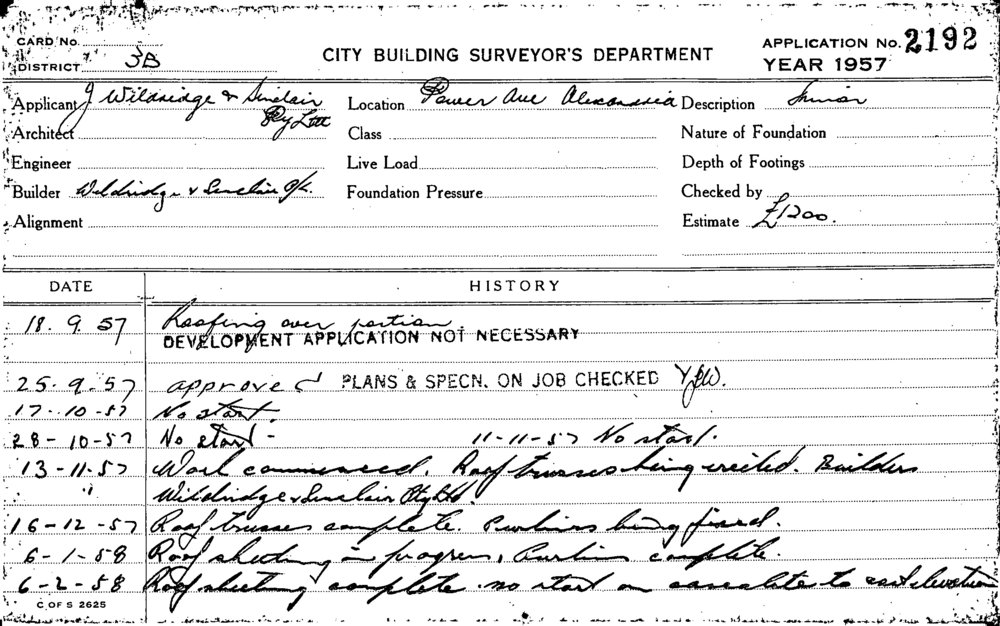 CARD No.
DISTRICT 3B
CITY BUILDING SURVEYOR'S DEPARTMENT
APPLICATION No. 2192
YEAR 1957
Applicant J Wildridge & Sinclair Pty Ltd
Location Power Ave Alexandria
Description
Architect
Class
Nature of Foundation
Engineer
Live Load
Depth of Footings
Builder Wildridge & Sinclair P/L.
Foundation Pressure
Checked by
Alignment
Estimate £1200.
DATE HISTORY
18. 9. 57 Roofing over portion
DEVELOPMENT APPLICATION NOT NECESSARY
25. 9. 57 approved PLANS & SPECN. ON JOB CHECKED
17-10-57 No start.
28-10-57 No start - 11-11-57 No start.
13-11-57 Work commenced. Roof trusses being erected. Builders
" Wildridge & Sinclair Pty Ltd.
16-12-57 Roof trusses complete. Purlins being fixed.
6-1-58 Roof sheeting in progress, Purlins complete.
6-2-58 Roof sheeting complete. no start on to east elevation
C OF S 2625